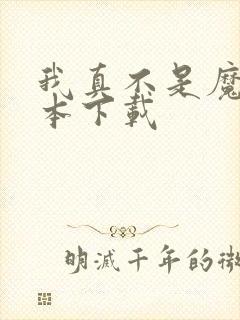 我真不是魔
本下载
明滅千年的微